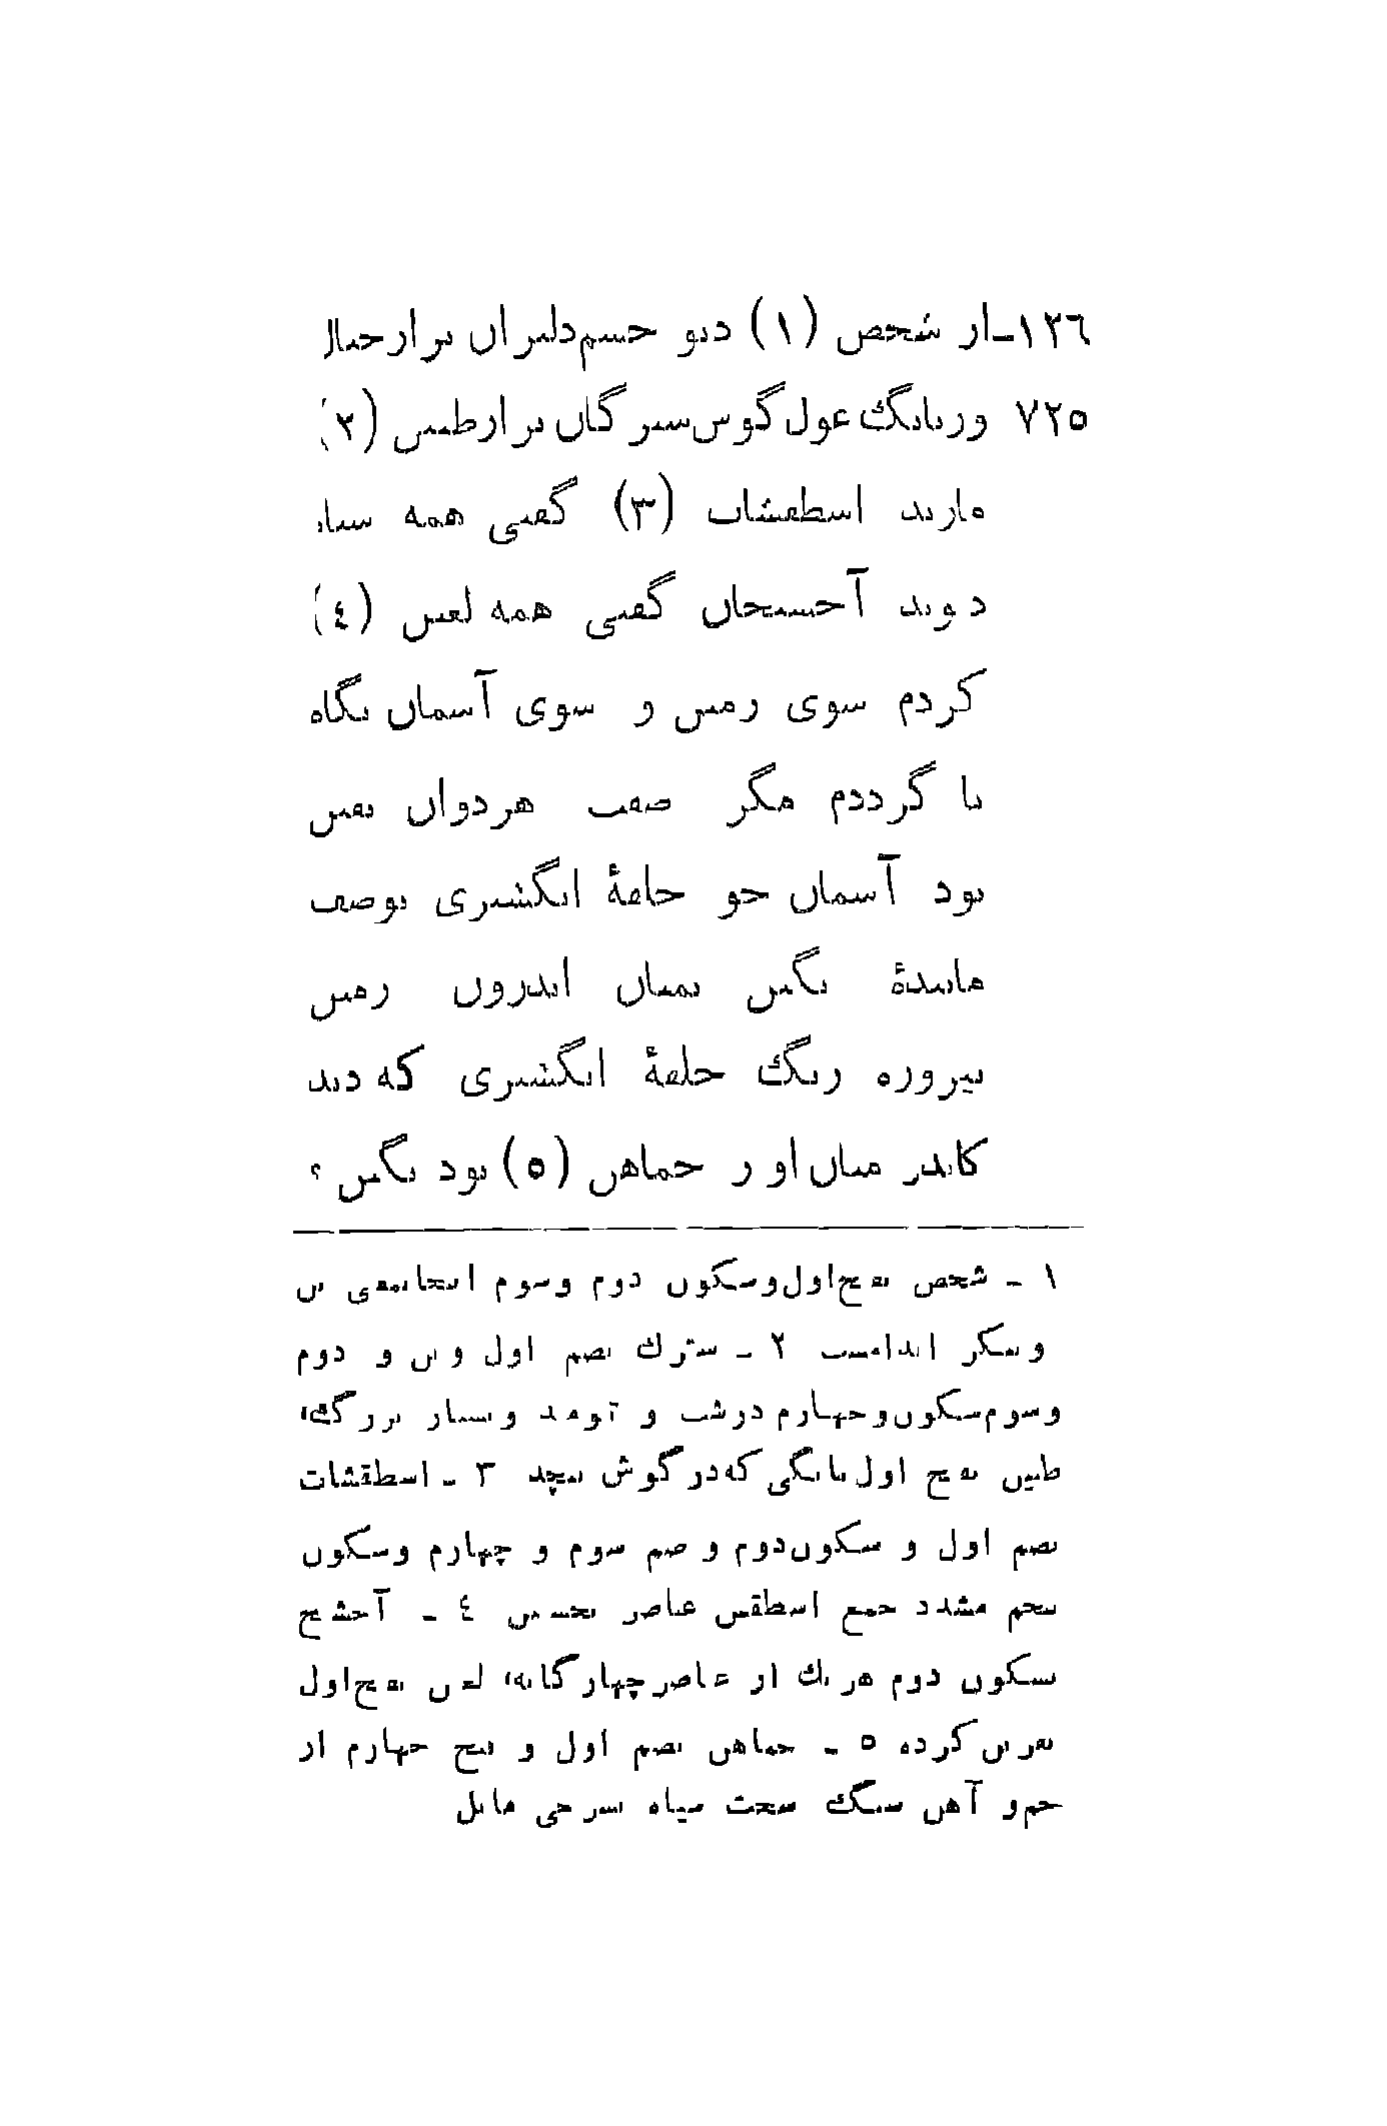 ١٢٦ـ از شخص (١) دیو چشم دلیران پر از خیال
٧٢٥ وز بانگ غول گوش سترگان پر از طنین (٢)
مارند اسطقشات (٣) گفتی همه سیاه
دیوند آخشیجان گفتی همه لعین (٤)
کردم سوی زمین و سوی آسمان نگاه
تا گرددم مگر صفت هردوان یقین
بود آسمان چو حلقهٔ انگشتری بوصف
مانندهٔ نگین بمیان اندرون زمین
پیروزه رنگ حلقهٔ انگشتری که دید
کاندر میان او ز خماهن (٥) بود نگین ؟
١ ـ شخص بفتح اول وسکون دوم وسوم اینجا بمعنی تن
و پیکر اندامست ٢ ـ سترك بضم اول وتن و دوم
وسوم سکون و چهارم درشت و تنومند و بسیار بزرگ،
طنین بفتح اول بانگی که در گوش پیچد ٣ ـ اسطقشات
بضم اول و سکون دوم و ضم سوم و چهارم وسکون
پنجم مشدد جمع اسطقس عناصر نخستین ٤ ـ آخشیج
بسکون دوم هر یك از عناصر چهارگانه، لعین بفتح اول
نفرین کرده ٥ ـ خماهن بضم اول و فتح چهارم از
خم و آهن سنگ سخت سیاه بسرخی مایل